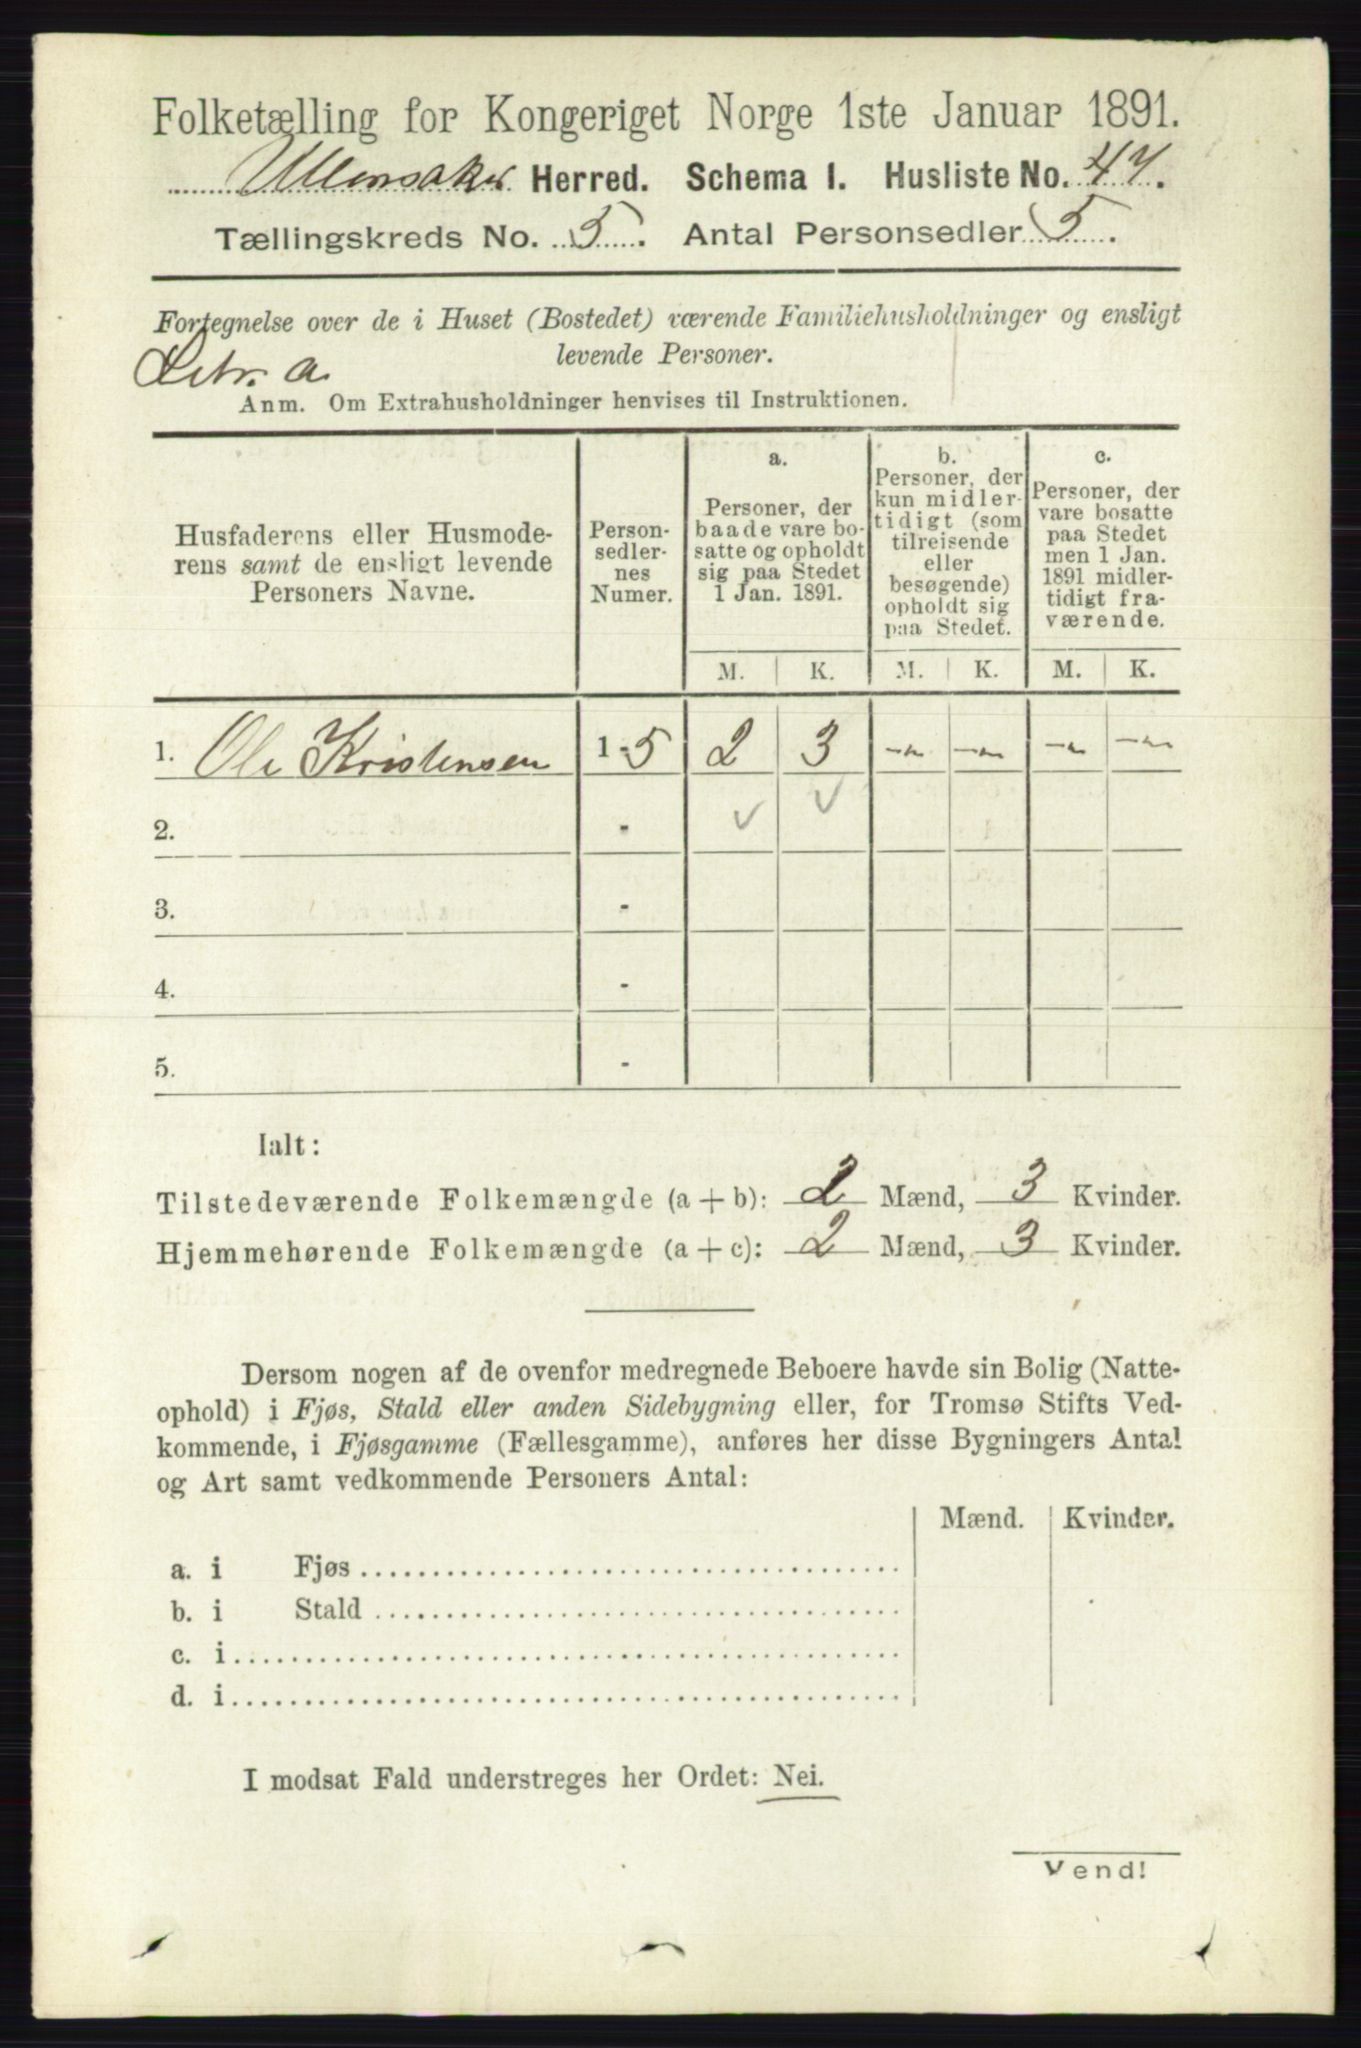 Folketælling for Kongeriget Norge 1ste Januar 1891.
Ullensaker Herred. Schema I. Husliste No. 47.
Tællingskreds No. 5. Antal Personsedler 5.
Fortegnelse over de i Huset (Bostedet) værende Familiehusholdninger og ensligt
levende Personer.
Litr. a
Anm. Om Extrahusholdninger henvises til Instruktionen.
Husfaderens eller Husmode-
rens samt de ensligt levende
Personers Navne.
Person-
sedler-
nes
Numer.
a.
Personer, der
baade vare bo-
satte og opholdt
sig paa Stedet
1 Jan. 1891.
b.
Personer, der
kun midler-
tidigt (som
tilreisende
eller
besøgende)
opholdt sig
paa Stedet.
c.
Personer, der
vare bosatte
paa Stedet
men 1 Jan.
1891 midler-
tidigt fra-
værende.
M. K. M. K. M. K.
1. Ole Kristensen 1-5 2 3
2. -
3. -
4. -
5. -
Ialt:
Tilstedeværende Folkemængde (a + b): 2 Mænd, 3 Kvinder.
Hjemmehørende Folkemængde (a + c): 2 Mænd, 3 Kvinder.
Dersom nogen af de ovenfor medregnede Beboere havde sin Bolig (Natte-
ophold) i Fjøs, Stald eller anden Sidebygning eller, for Tromsø Stifts Ved-
kommende, i Fjøsgamme (Fællesgamme), anføres her disse Bygningers Antal
og Art samt vedkommende Personers Antal:
Mænd. Kvinder.
a. i Fjøs
b. i Stald
c. i
d. i
I modsat Fald understreges her Ordet: Nei.
Vend!